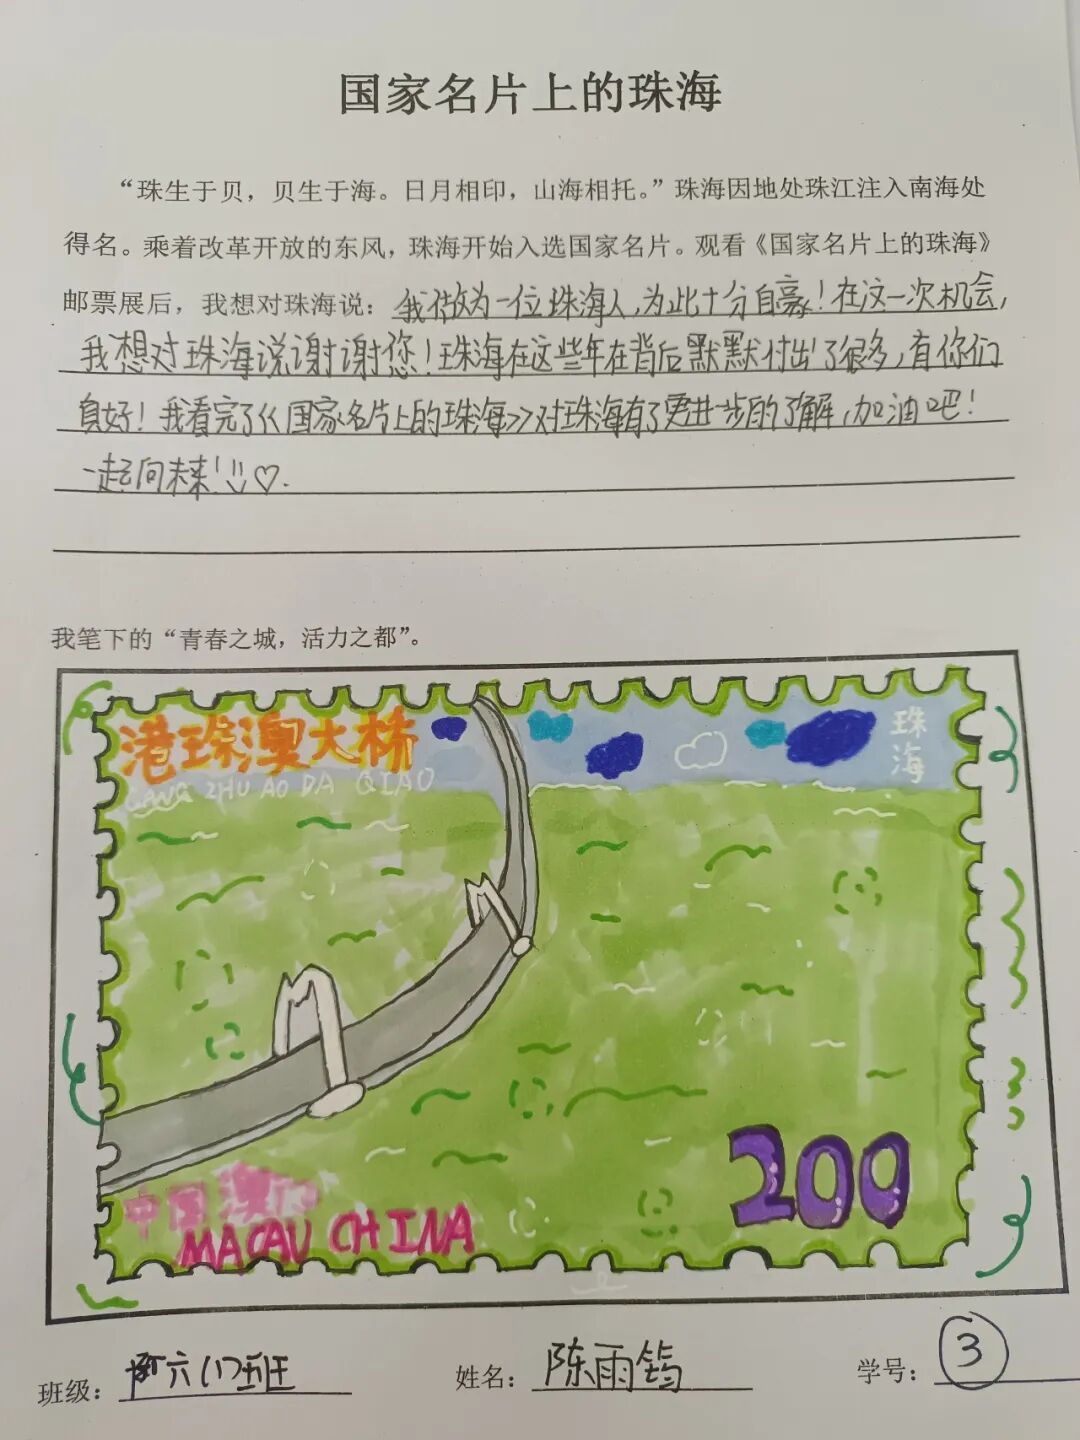 国家名片上的珠海
“珠生于贝，贝生于海。日月相印，山海相托。”珠海因地处珠江注入南海处
得名。乘着改革开放的东风，珠海开始入选国家名片。观看《国家名片上的珠海》
邮票展后，我想对珠海说：我做为一位珠海人，为此十分自豪！在这一次机会，
我想对珠海说谢谢您！珠海在这些年在背后默默付出了很多，有你们
真好！我看完了《国家名片上的珠海》对珠海有了更进一步的了解，加油吧！
一起向未来！
我笔下的“青春之城，活力之都”。
港珠澳大桥
珠海
GANG ZHU AO DA QIAO
200
中国澳门
MACAU CHINA
班级：六(1)班 姓名：陈雨筠 学号：3